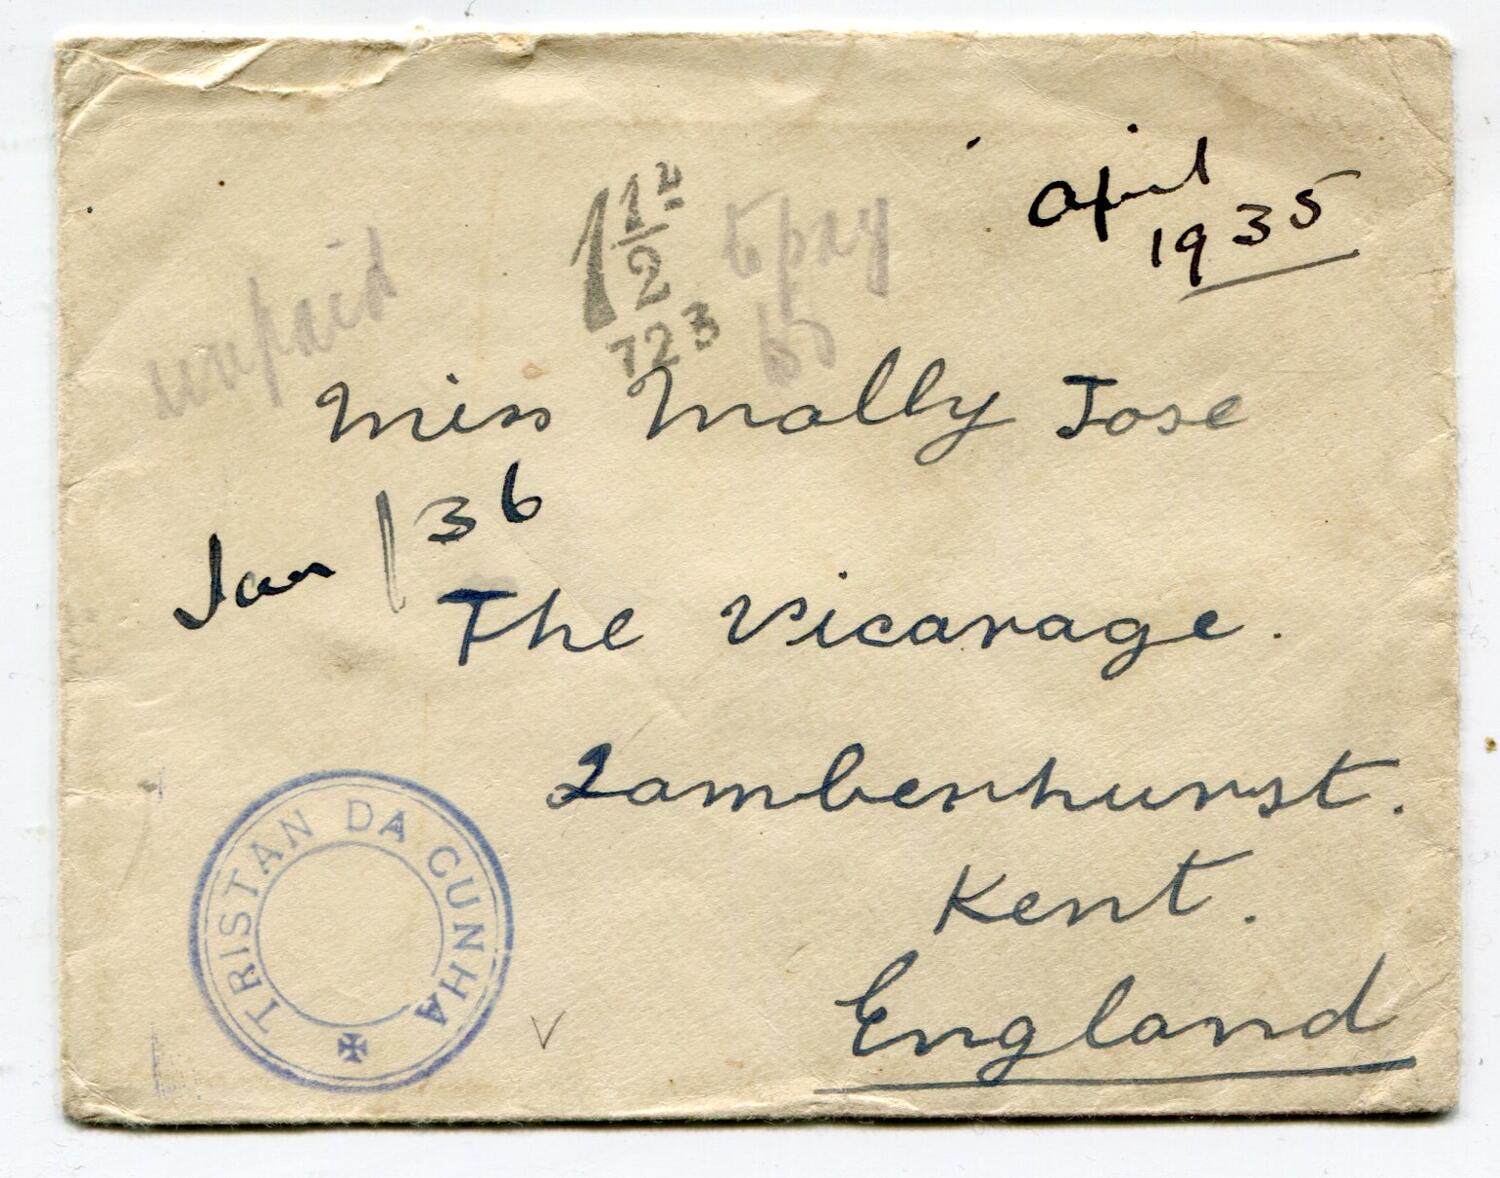 April
1935
unpaid
1 1/2 D
723
to pay
Miss Molly Jose
Jan / 36
The Vicarage.
Lamberhurst.
Kent.
England
TRISTAN DA CUNHA